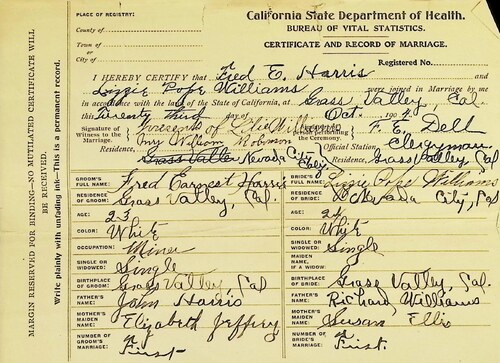 California State Department of Health.
BUREAU OF VITAL STATISTICS.
CERTIFICATE AND RECORD OF MARRIAGE.
PLACE OF REGISTRY:
County of
Town of
or
City of
Registered No.
I HEREBY CERTIFY that Fred E. Harris and
Lizzie Pope Williams were joined in Marriage by me
in accordance with the laws of the State of California, at Grass Valley, Cal.
this Twenty third day of Oct. 1904
Signature of Witness to the Marriage, William Robinson
Residence, Grass Valley Nevada City
person performing the Ceremony. F. E. Dell
Official Station, Clergyman
Residence, Grass Valley, Cal
GROOM'S FULL NAME: Fred Earnest Harris
BRIDE'S FULL NAME: Lizzie Pope Williams
RESIDENCE OF GROOM: Grass Valley, Cal.
RESIDENCE OF BRIDE: Nevada City, Cal
AGE: 23
AGE: 24
COLOR: White
COLOR: White
OCCUPATION: Miner
SINGLE OR WIDOWED: Single
SINGLE OR WIDOWED: Single
MAIDEN NAME, IF A WIDOW:
BIRTHPLACE OF GROOM: Grass Valley, Cal
BIRTHPLACE OF BRIDE: Grass Valley, Cal.
FATHER'S NAME: John Harris
FATHER'S NAME: Richard Williams
MOTHER'S MAIDEN NAME: Elizabeth Jeffery
MOTHER'S MAIDEN NAME: Susan Ellis
NUMBER OF GROOM'S MARRIAGE: First
NUMBER OF BRIDE'S MARRIAGE: First.
MARGIN RESERVED FOR BINDING—NO MUTILATED CERTIFICATE WILL
BE RECEIVED.
Write plainly with unfading ink—This is a permanent record.